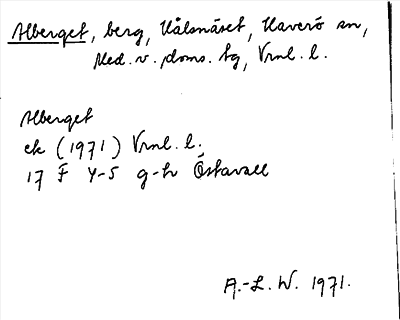 Alberget, berg, Kålsnäset, Haverö sn,
Med. v. doms. tg, Vrnl. l.
Alberget
ek (1971) Vrnl. l.
17 F 4-5 g-h Östavall
A.-L. W. 1971.